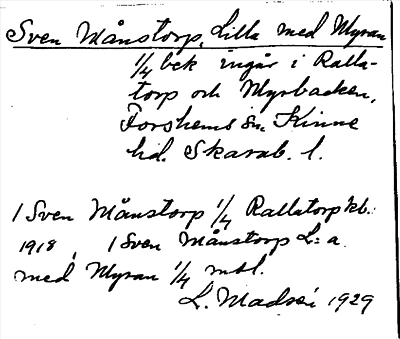 Sven Månstorp, Lilla med Myran
1/4 bek ingår i Ralla-
torp och Myrbacken,
Forshems sn. Kinne
hd. Skarab. l.
1 Sven Månstorp 1/4 Rallatorp kb.
1918, 1 Sven Månstorp L:a
med Myran 1/4 mtl.
L. Madsén 1929